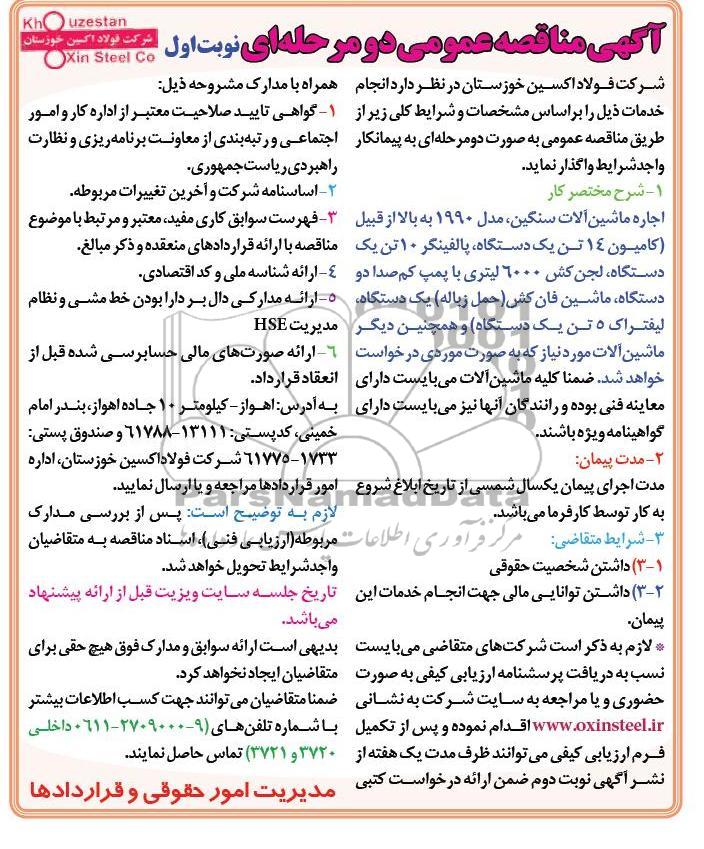 Khouzestan
شرکت فولاد اکسین خوزستان
Oxin Steel Co
آگهی مناقصه عمومی دو مرحله‌ای نوبت اول
شرکت فولاد اکسین خوزستان در نظر دارد انجام
خدمات ذیل را براساس مشخصات و شرایط کلی زیر از
طریق مناقصه عمومی به صورت دومرحله‌ای به پیمانکار
واجد شرایط واگذار نماید.
۱- شرح مختصر کار
اجاره ماشین‌آلات سنگین، مدل ۱۹۹۰ به بالا از قبیل
(کامیون ۱۴ تن یک دستگاه، پالفینگر ۱۰ تن یک
دستگاه، لجن‌کش ۶۰۰۰ لیتری با پمپ کم‌صدا دو
دستگاه، ماشین فان‌کش (حمل زباله) یک دستگاه،
لیفتراک ۵ تن یک دستگاه) و همچنین دیگر
ماشین‌آلات مورد نیاز که به صورت موردی درخواست
خواهد شد. ضمنا کلیه ماشین‌آلات می‌بایست دارای
معاینه فنی بوده و رانندگان آنها نیز می‌بایست دارای
گواهینامه ویژه باشند.
۲- مدت پیمان:
مدت اجرای پیمان یکسال شمسی از تاریخ ابلاغ شروع
به کار توسط کارفرما می‌باشد.
۳- شرایط متقاضی:
۳-۱) داشتن شخصیت حقوقی
۳-۲) داشتن توانایی مالی جهت انجام خدمات این
پیمان.
* لازم به ذکر است شرکت‌های متقاضی می‌بایست
نسب به دریافت پرسشنامه ارزیابی کیفی به صورت
حضوری و یا مراجعه به سایت شرکت به نشانی
www.oxinsteel.ir اقدام نموده و پس از تکمیل
فرم ارزیابی کیفی می‌توانند ظرف مدت یک هفته از
نشر آگهی نوبت دوم ضمن ارائه درخواست کتبی
همراه با مدارک مشروحه ذیل:
۱- گواهی تایید صلاحیت معتبر از اداره کار و امور
اجتماعی و رتبه‌بندی از معاونت برنامه‌ریزی و نظارت
راهبردی ریاست جمهوری.
۲- اساسنامه شرکت و آخرین تغییرات مربوطه.
۳- فهرست سوابق کاری مفید، معتبر و مرتبط با موضوع
مناقصه با ارائه قراردادهای منعقده و ذکر مبالغ.
۴- ارائه شناسه ملی و کد اقتصادی.
۵- ارائه مدارکی دال بر دارا بودن خط مشی و نظام
مدیریت HSE
۶- ارائه صورت‌های مالی حسابرسی شده قبل از
انعقاد قرارداد.
به آدرس: اهواز - کیلومتر ۱۰ جاده اهواز، بندر امام
خمینی، کدپستی: ۱۳۱۱۱-۶۱۷۸۸ و صندوق پستی:
۱۷۳۳-۶۱۷۷۵ شرکت فولاد اکسین خوزستان، اداره
امور قراردادها مراجعه و یا ارسال نمایید.
لازم به توضیح است: پس از بررسی مدارک
مربوطه (ارزیابی فنی)، اسناد مناقصه به متقاضیان
واجد شرایط تحویل خواهد شد.
تاریخ جلسه سایت ویزیت قبل از ارائه پیشنهاد
می‌باشد.
بدیهی است ارائه سوابق و مدارک فوق هیچ حقی برای
متقاضیان ایجاد نخواهد کرد.
ضمنا متقاضیان می‌توانند جهت کسب اطلاعات بیشتر
با شماره تلفن‌های (۹-۲۷۰۹۰۰۰-۰۶۱۱ داخلی
۳۷۲۰ و ۳۷۲۱) تماس حاصل نمایند.
مدیریت امور حقوقی و قراردادها
ParsNamadData